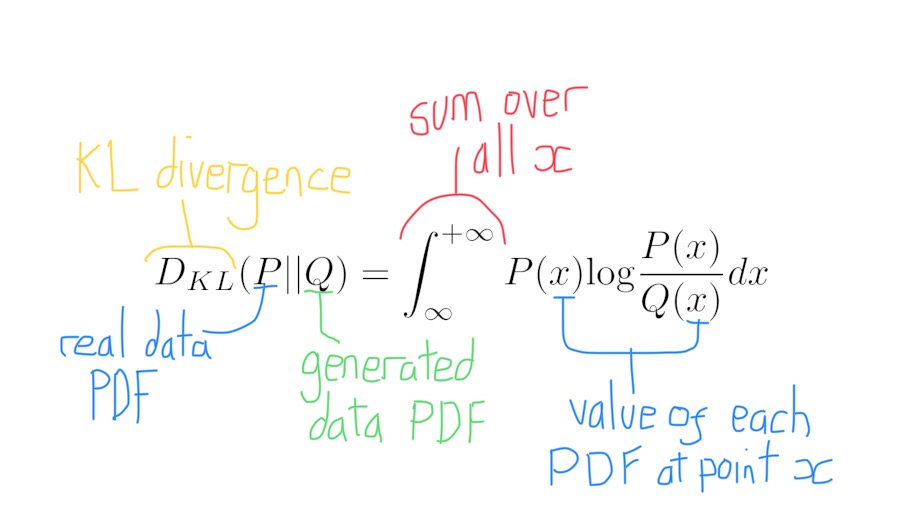 sum over
all x
KL divergence
D_{KL}(P||Q) = \int_{\infty}^{+\infty} P(x)log\frac{P(x)}{Q(x)}dx
real data
PDF
generated
data PDF
value of each
PDF at point x